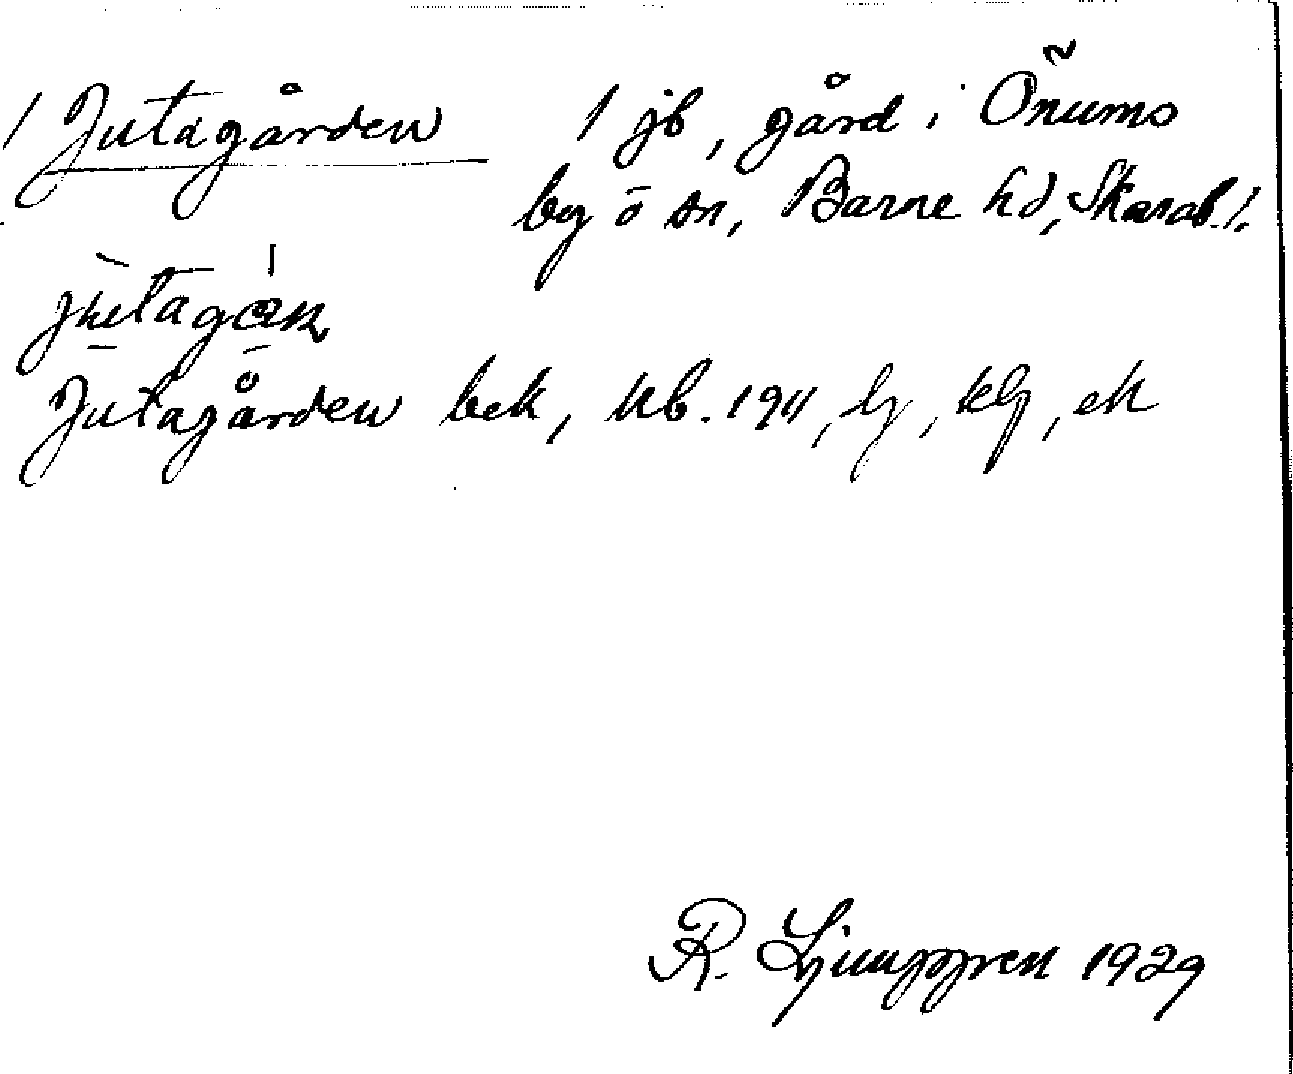 / Jutagården 1 jb, gård i Önums
by o sn, Barne hd, Skarab. l.
Jutagården bek, kb. 1911, lj, klj, ek
R. Ljunggren 1929